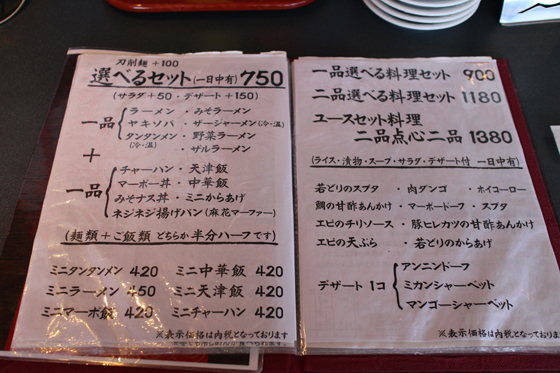 刀削麺 +100
選べるセット(一日中有) 750
(サラダ +50・デザート +150)
一品
ラーメン・みそラーメン
ヤキソバ・ザージャーメン(冷・温)
タンタンメン・野菜ラーメン
(冷・温)
・ザルラーメン
+
一品
チャーハン・天津飯
マーボー丼・中華飯
みそナス丼・ミニからあげ
ネジネジ揚げパン(麻花マーファー)
(麺類+ご飯類 どちらか半分ハーフです)
ミニタンタンメン 420 ミニ中華飯 420
ミニラーメン 450 ミニ天津飯 420
ミニマーボ飯 420 ミニチャーハン 420
※表示価格は内税となっております
一品選べる料理セット 900
二品選べる料理セット 1180
ユースセット料理
二品点心二品 1380
(ライス・漬物・スープ・サラダ・デザート付 一日中有)
若どりのスブタ・肉ダンゴ・ホイコーロー
鯛の甘酢あんかけ・マーボードーフ・スブタ
エビのチリソース・豚ヒレカツの甘酢あんかけ
エビの天ぷら・若どりのからあげ
デザート 1コ
アンニンドーフ
ミカンシャーベット
マンゴーシャーベット
※表示価格は内税となっております